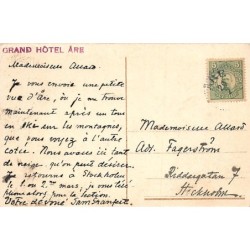 GRAND HÔTEL ÅRE
Mademoiselle
Je vous envoie une petite
vue d'Åre, où je me trouve
maintenant après un tour
en ski sur les montagnes,
que vous connaissez de mon
côté. Nous avons ici tant
de neige, qu'on peut désirer.
Je retourne à Stockholm
le 1. ou 2. mars, je vous télé-
phone alors pour la lection.
Votre dévoué
Mademoiselle
Adr. Fågerström
Riddargatan 7
Stockholm